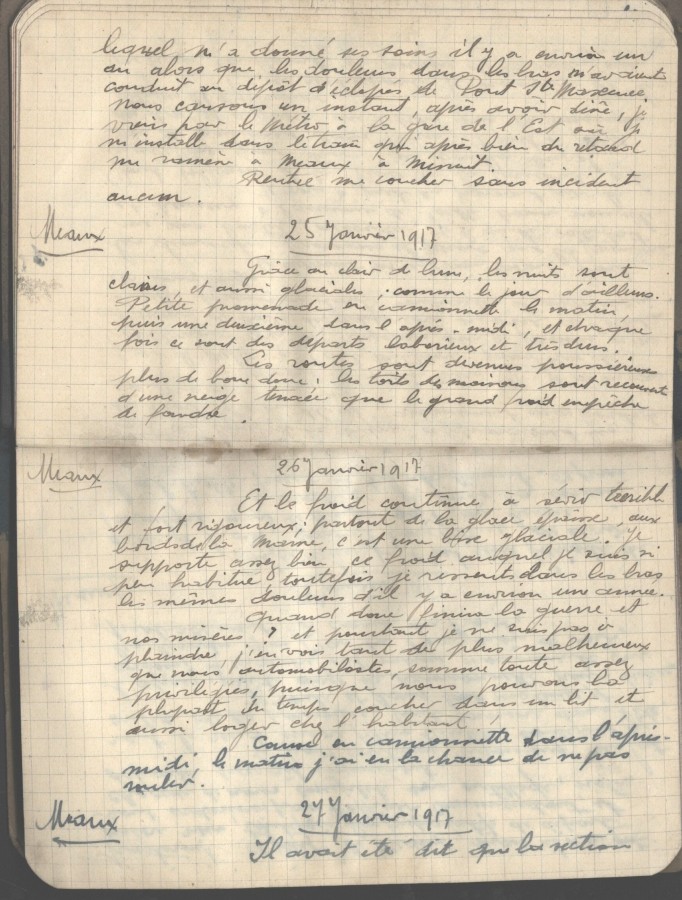 lequel m'a donné ses soins il y a environ un
an alors que les douleurs dans les bras m'avaient
conduit au dépôt d'éclopés de Pont Ste Maxence
nous causons un instant, après avoir dîné, je
viens par le Métro à la gare de l'Est où je
m'installe dans le train qui après bien du retard
me ramène à Meaux à Minuit.
Rentré me coucher sans incident
aucun.
Meaux 25 Janvier 1917
Grâce au clair de lune, les nuits sont
claires, et aussi glaciales, comme le jour d'ailleurs.
Petite promenade en camionnette le matin,
puis une deuxième dans l'après-midi, et chaque
fois ce sont des départs laborieux et très durs.
Les routes sont devenues poussiéreuses
plus de boue donc ; les toits des maisons sont recouverts
d'une neige tenace que le grand froid empêche
de fondre.
Meaux 26 Janvier 1917
Et le froid continue à sévir terrible
et fort rigoureux ; partout de la glace épaisse, aux
bords de la Marne, c'est une bise glaciale. Je
supporte assez bien ce froid auquel je suis si
peu habitué toutefois je ressens dans les bras
les mêmes douleurs d'il y a environ une année.
Quand donc finira la guerre et
nos misères ? et pourtant je ne suis pas à
plaindre, j'en vois tant de plus malheureux
que nous automobilistes, somme toute assez
privilégiés, puisque nous pouvons la
plupart du temps coucher dans un lit et
aussi loger chez l'habitant !
Course en camionnette dans l'après-
midi, le matin j'ai eu la chance de ne pas
rouler.
Meaux 27 Janvier 1917
Il avait été dit que la section